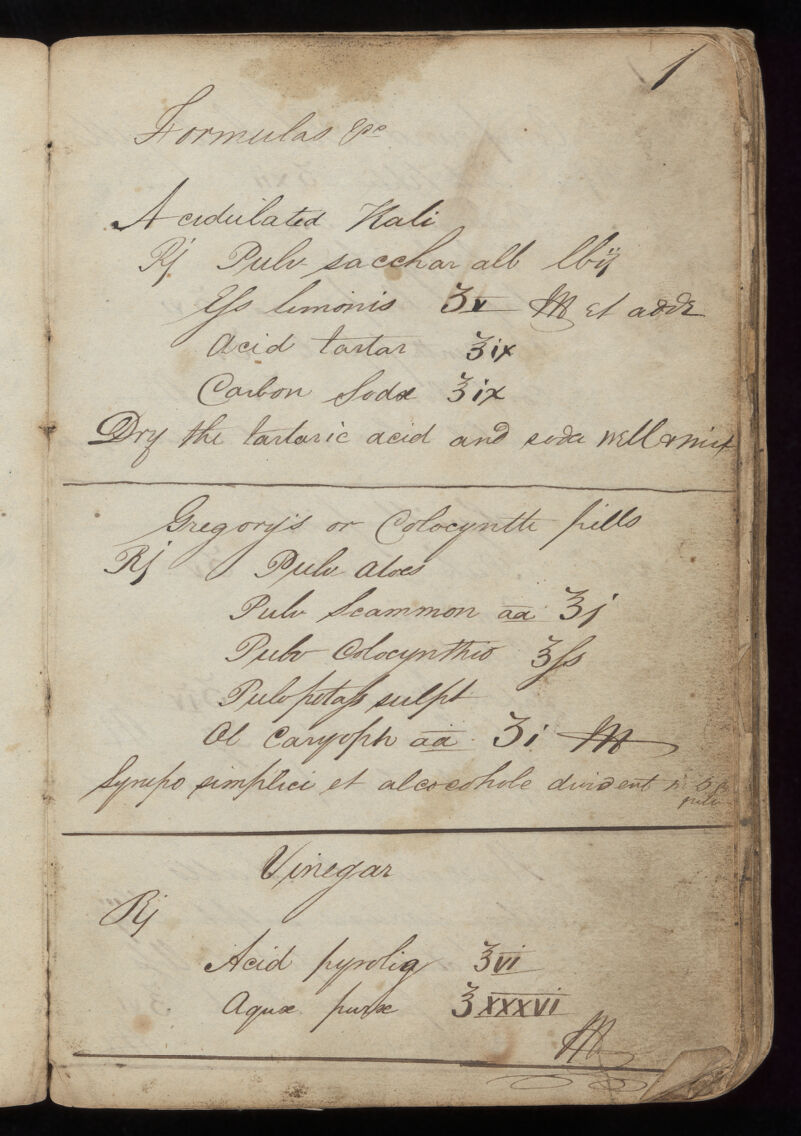 1
Formulas &c
Acidulated Kali
Rj Pulv sacchar alb lbij
Ess limonis ʒv M et adde
Acid tartar ʒix
Carbon Sodæ ʒix
Dry the tartaric acid and soda well & mix
Gregory's or Colocynth pills
Rj Pulv aloes
Pulv Scammon aa ʒj
Pulv Colocynthid ʒss
Pulv potass sulph
Ol Caryoph aa ʒi M
Syrupo simplici et alcocohole divident
Vinegar
Rj
Acid pyrolig ʒvi
Aquæ puræ ʒxxxvi
M